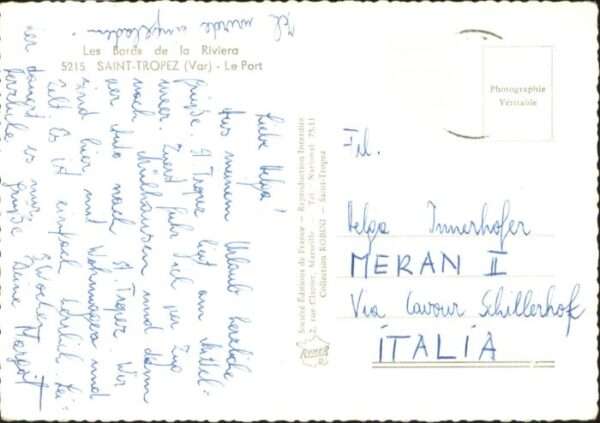 Les Bords de la Riviera
5215 SAINT-TROPEZ (Var) - Le Port
Ich wurde eingeladen.
Liebe Helga!
Aus meinem Urlaub herzliche
Grüße. St. Tropez liegt am Mittel-
meer. Zuerst fuhr ich per Zug
nach Mülhausen und dann
per Auto nach St. Tropez. Wir
sind hier mit Wohnwagen und
Zelt. Es ist einfach herrlich. Lei-
der dauert es nur 3 Wochen.
Herzliche Grüße Deine Margot
Société Éditions de France - Reproduction Interdite
2, rue Clapier, Marseille - Tél. National 75-11
Collection ROBINI - Saint-Tropez
Photographie
Véritable
Frl.
Helga Innerhofer
MERAN II
Via Cavour Schillerhof
ITALIA